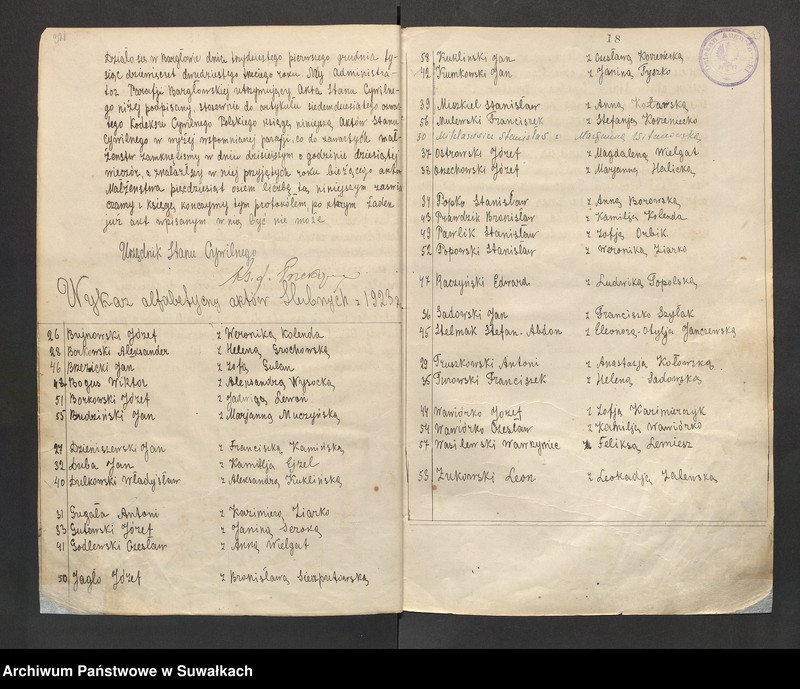 Działo się w Bargłowie dnia trzydziestego pierwszego grudnia ty-
siąc dziewięćset dwudziestego trzeciego roku. My Administra-
tor Parafji Bargłowskiej utrzymujący Akta Stanu Cywilne-
go niżej podpisany, stosownie do artykułu siedemdziesiątego
tego Kodeksu Cywilnego Polskiego księgę niniejszą Aktów Stanu
Cywilnego w wyżej wspomnianej parafji, co do zawartych mał-
żeństw zamknęliśmy w dniu dzisiejszym o godzinie dziesiątej
wieczór, a znalazłszy w niej przyjętych roku bieżącego aktów
Małżeństwa pięćdziesiąt osiem liczbę tą niniejszym zaświad
czamy i księgę kończymy tym protokółem po którym żaden
już akt wpisanym w nią być nie może
Urzędnik Stanu Cywilnego
Wykaz alfabetyczny aktów Ślubnych z 1923 r.
26 Bujnowski Józef z Weroniką Kolenda
28 Borkowski Aleksander z Heleną Grochowską
46 Brzezicki Jan z Zofją Gulan
48 Bogus Wiktor z Aleksandrą Wysocką
51 Borkowski Józef z Jadwigą Lewoń
55 Budziński Jan z Marjanną Muczyńską
27 Dzieniszewski Jan z Franciszką Kamińską
32 Duba Jan z Kamilją Gizel
40 Dulkowski Władysław z Aleksandrą Kuklińską
31 Gregała Antoni z Kazimierą Ziarko
33 Gutowski Józef z Janiną Seroką
41 Godlewski Czesław z Anną Wielgat
50 Jagło Józef z Bronisławą Sierzputowską
18
58 Kukliński Jan z Czesławą Korzeniecką
42 Kumkowski Jan z Janiną Tyszko
39 Mieszkiel Stanisław z Anną Kozłowską
56 Mulewski Franciszek z Stefanją Korzeniecko
30 Stanisław z Marjanną
37 Ostrowski Józef z Magdaleną Wielgat
38 Orzechowski Józef z Marjanną Halicką
34 Popko Stanisław z Anną Borowską
43 Prawdzik Bronisław z Kamilją Kolenda
49 Pawlik Stanisław z Zofją Orbik
52 Popowski Stanisław z Weroniką Ziarko
47 Raczyński Edward z Ludwiką Topolską
36 Sadowski Jan z Franciszką Szyłak
45 Stelmak Stefan-Abdon z Eleonorą-Otylją Janczewską
29 Truszkowski Antoni z Anastazją Kołowską
35 Turowski Franciszek z Heleną Sadowską
44 Wawiórko Józef z Zofją Kazimierczyk
54 Wawiórko Czesław z Kamilją Wawiórko
57 Wasilewski Wawrzyniec z Feliksą Lemiesz
53 Żukowski Leon z Leokadją Zalewską
Archiwum Państwowe w Suwałkach